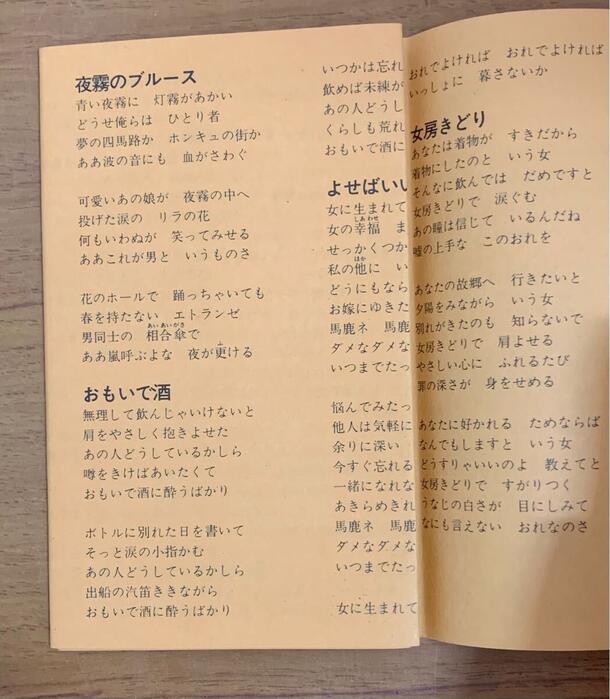 夜霧のブルース
青い夜霧に　灯霧があかい
どうせ俺らは　ひとり者
夢の四馬路か　ホンキュの街か
ああ波の音にも　血がさわぐ
可愛いあの娘が　夜霧の中へ
投げた涙の　リラの花
何もいわぬが　笑ってみせる
ああこれが男と　いうものさ
花のホールで　踊っちゃいても
春を持たない　エトランゼ
あいあいがさ
男同士の　相合傘で
ふ
ああ嵐呼ぶよな　夜が更ける
おもいで酒
無理して飲んじゃいけないと
肩をやさしく抱きよせた
あの人どうしているかしら
噂をきけばあいたくて
おもいで酒に酔うばかり
ボトルに別れた日を書いて
そっと涙の小指かむ
あの人どうしているかしら
出船の汽笛ききながら
おもいで酒に酔うばかり
いつかは忘れ
飲めば未練が
あの人どうし
くらしも荒れ
おもいで酒に
よせばいい
女に生まれて
しあわせ
女の幸福　ま
せっかくつか
ほか
私の他に　い
どうにもなら
お嫁にゆきた
馬鹿ネ　馬鹿
ダメなダメな
いつまでたっ
悩んでみたっ
他人は気軽に
余りに深い
今すぐ忘れる
一緒になれな
あきらめきれ
馬鹿ネ　馬鹿
ダメなダメな
いつまでたっ
女に生まれて
おれでよければ　おれでよければ
いっしょに　暮さないか
女房きどり
あなたは着物が　すきだから
着物にしたのと　いう女
そんなに飲んでは　だめですと
女房きどりで　涙ぐむ
あの瞳は信じて　いるんだね
嘘の上手な　このおれを
あなたの故郷へ　行きたいと
夕陽をみながら　いう女
別れがきたのも　知らないで
女房きどりで　肩よせる
やさしい心に　ふれるたび
罪の深さが　身をせめる
あなたに好かれる　ためならば
なんでもしますと　いう女
どうすりゃいいのよ　教えてと
女房きどりで　すがりつく
うなじの白さが　目にしみて
なにも言えない　おれなのさ